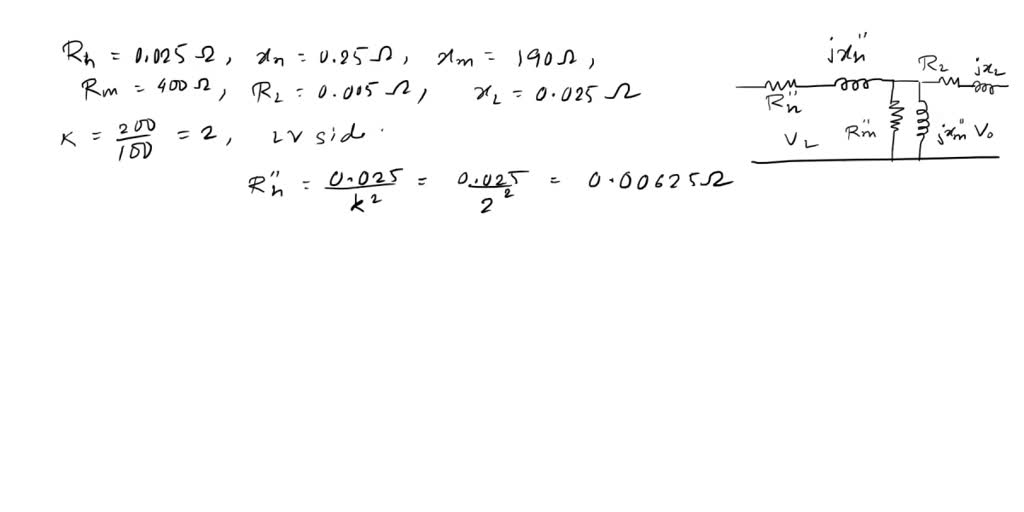 Rh = 0.025 Ω, xn = 0.25 Ω, xm = 190 Ω,
Rm = 400 Ω, R2 = 0.005 Ω, x2 = 0.025 Ω
K = 200/100 = 2, LV sid.
R"h = 0.025/k² = 0.025/2² = 0.00625 Ω
jx"n
R2
jx2
R"n
VL
R"m
jx"m
Vo